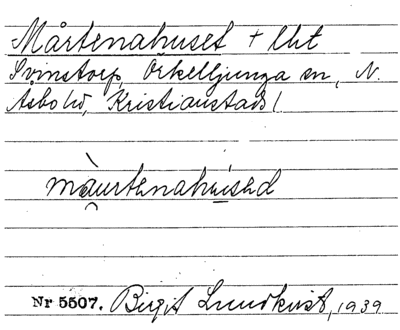 Mårtenahuset + lht
Svinstorp, Örkelljunga sn, N.
Åsbo hd, Kristianstads l
màu̯rtenahuisəd
Nr 5507. Birgit Lundkvist, 1939